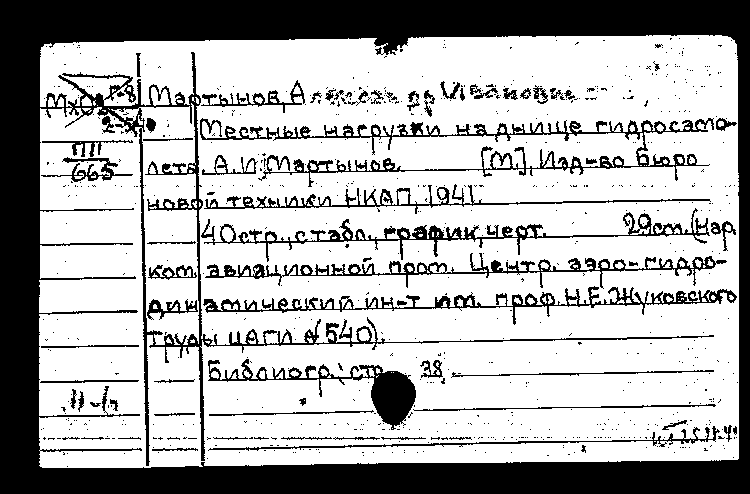 Мартынов, Александр Иванович
Местные нагрузки на днище гидросамо-
лета. А.И. Мартынов. [М.], Изд-во Бюро
новой техники НКАП, 1941.
40 стр., с табл., график, черт. 29 см. (Нар.
ком. авиационной пром. Центр. аэро-гидро-
динамический ин-т им. проф. Н.Е. Жуковского
Труды ЦАГИ № 540).
Библиогр.: стр. 38.
ПП
665